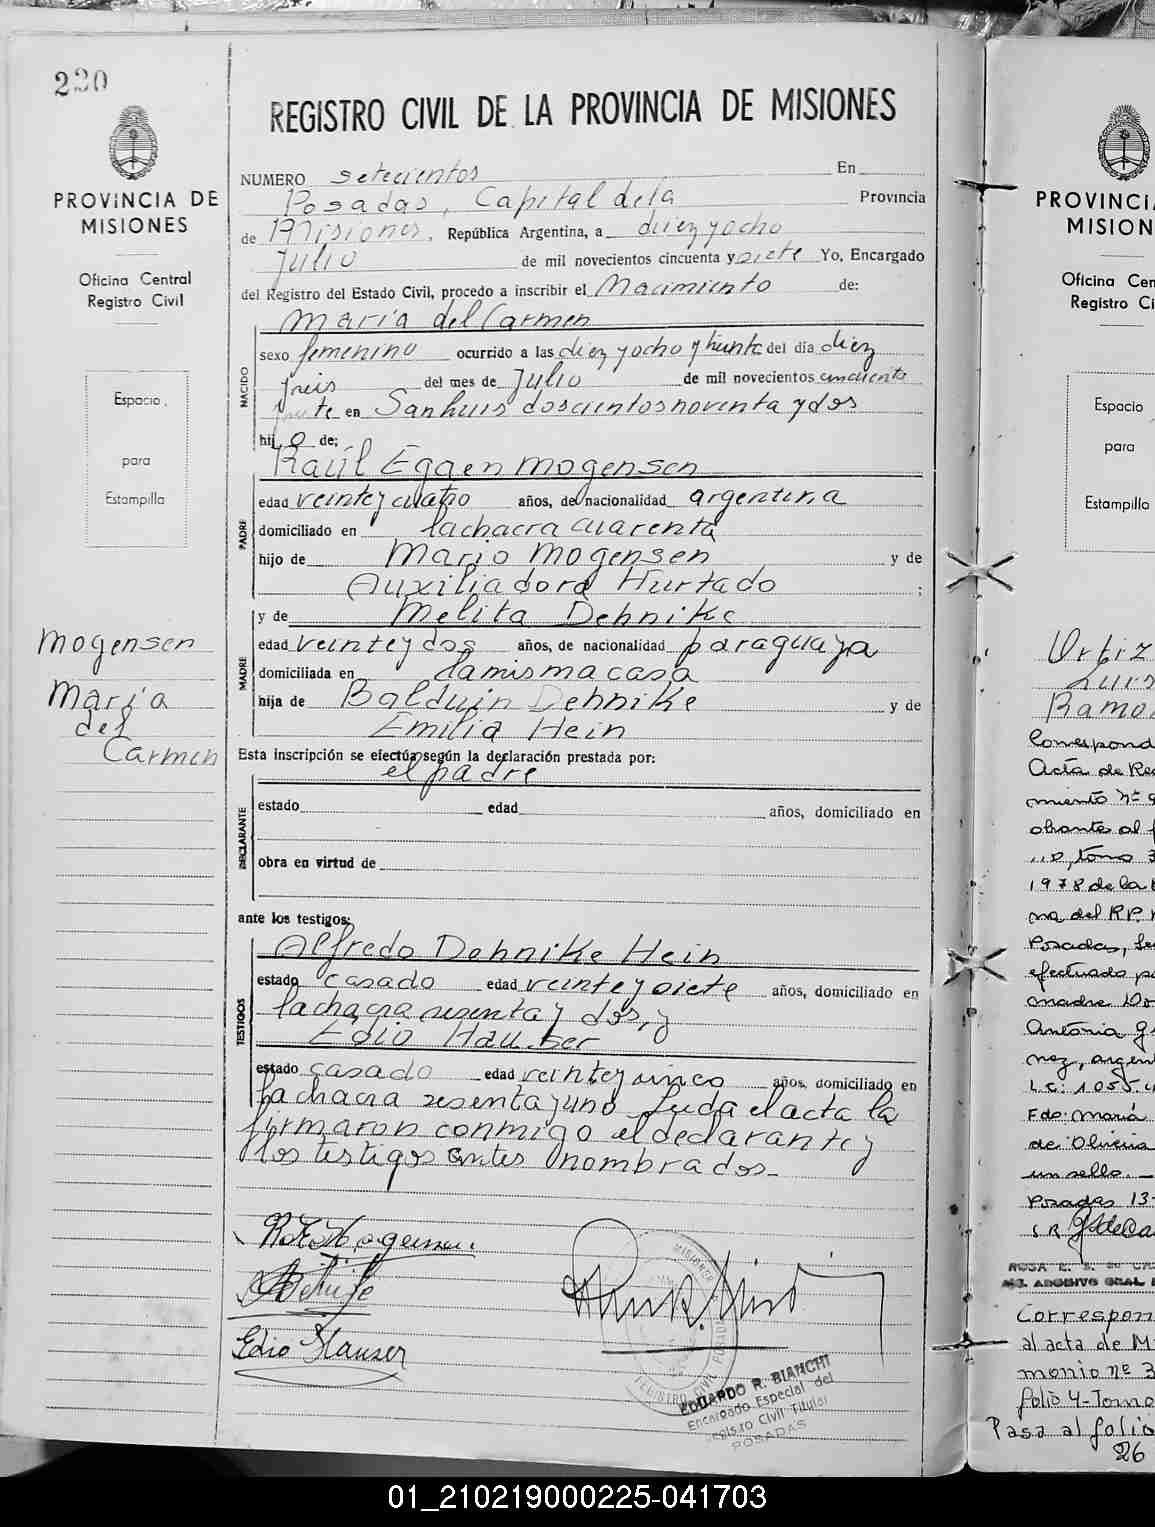 220
REGISTRO CIVIL DE LA PROVINCIA DE MISIONES
PROVINCIA DE
MISIONES
Oficina Central
Registro Civil
Espacio
para
Estampilla
Mogensen
María
del
Carmen
NUMERO setecientos En
Posadas, Capital de la Provincia
de Misiones, República Argentina, a diez y ocho
Julio de mil novecientos cincuenta y siete Yo, Encargado
del Registro del Estado Civil, procedo a inscribir el Nacimiento de:
NACIDO
María del Carmen
sexo femenino ocurrido a las diez y ocho y treinta del día diez
y seis del mes de Julio de mil novecientos cincuenta
y siete en San Luis doscientos noventa y dos
hij o de;
PADRE
Raúl Eggen Mogensen
edad veinte y cuatro años, de nacionalidad argentina
domiciliado en la chacra cuarenta
hijo de Mario Mogensen y de
Auxiliadora Hurtado ;
MADRE
y de Melita Dehnike
edad veinte y dos años, de nacionalidad paraguaya
domiciliada en la misma casa
hija de Balduin Dehnike y de
Emilia Hein
Esta inscripción se efectúa según la declaración prestada por:
el padre
DECLARANTE
estado edad años, domiciliado en
obra en virtud de
ante los testigos:
TESTIGOS
Alfredo Dehnike Hein
estado casado edad veinte y siete años, domiciliado en
la chacra sesenta y dos, y
Edio Hauser
estado casado edad veinte y cinco años, domiciliado en
la chacra sesenta y uno. Leida el acta la
firmaron conmigo el declarante y
los testigos antes nombrados.-
Edio Hauser
MISIONES
REGISTRO CIVIL POSADAS
EDUARDO R. BIANCHI
Encargado Especial del
Registro Civil Titular
POSADAS
PROVINCIA
MISION
Oficina Cen
Registro Ci
Espacio
para
Estampilla
Ortiz
Luis
Ramo
Correspond
Acta de Rec
miento nº 9
obrante al f
tomo 3
1978 de la
na del RP.
Posadas,
efectuado p
madre Do
Antonia G
nez, argent
L.C: 1.055.
Fdo: María
de Olivera
un sello. —
Posadas 13-
S R
Correspon
al acta de M
monio nº 3
folio 4-Tomo
Pasa al folio
26
01_210219000225-041703